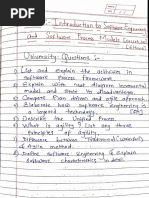 :- Introduction to Software Engineering
and Software Process Models
University Questions :-
1) List and Explain the activities in
Software process framework.
2) Explain with neat diagram incremental
model and State its disadvantages
3) Compare Plan driven and agile approach.
4) Elaborate how software engineering is
a layered technology.
5) Describe the Unified Process.
6) What is agility? List any three
principles of agility.
7)
of Agile method.
8) Define software Engineering & Explain
software characteristics in detail